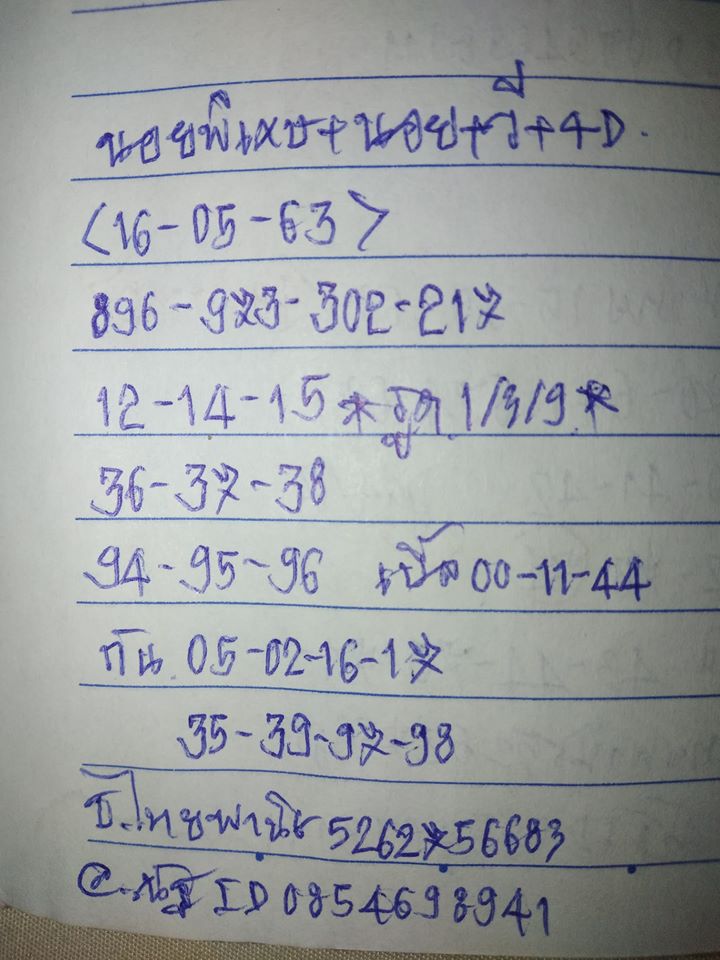 นอยพิเศษ+นอย+วี+4D.
<16-05-63>
896-973-302-217
12-14-15 *รูด 1/3/9*
36-37-38
94-95-96 เบิ้ล 00-11-44
กัน 05-02-16-17
35-39-97-98
ธ.ไทยพานิช 5262756683
@. ID 0854698941